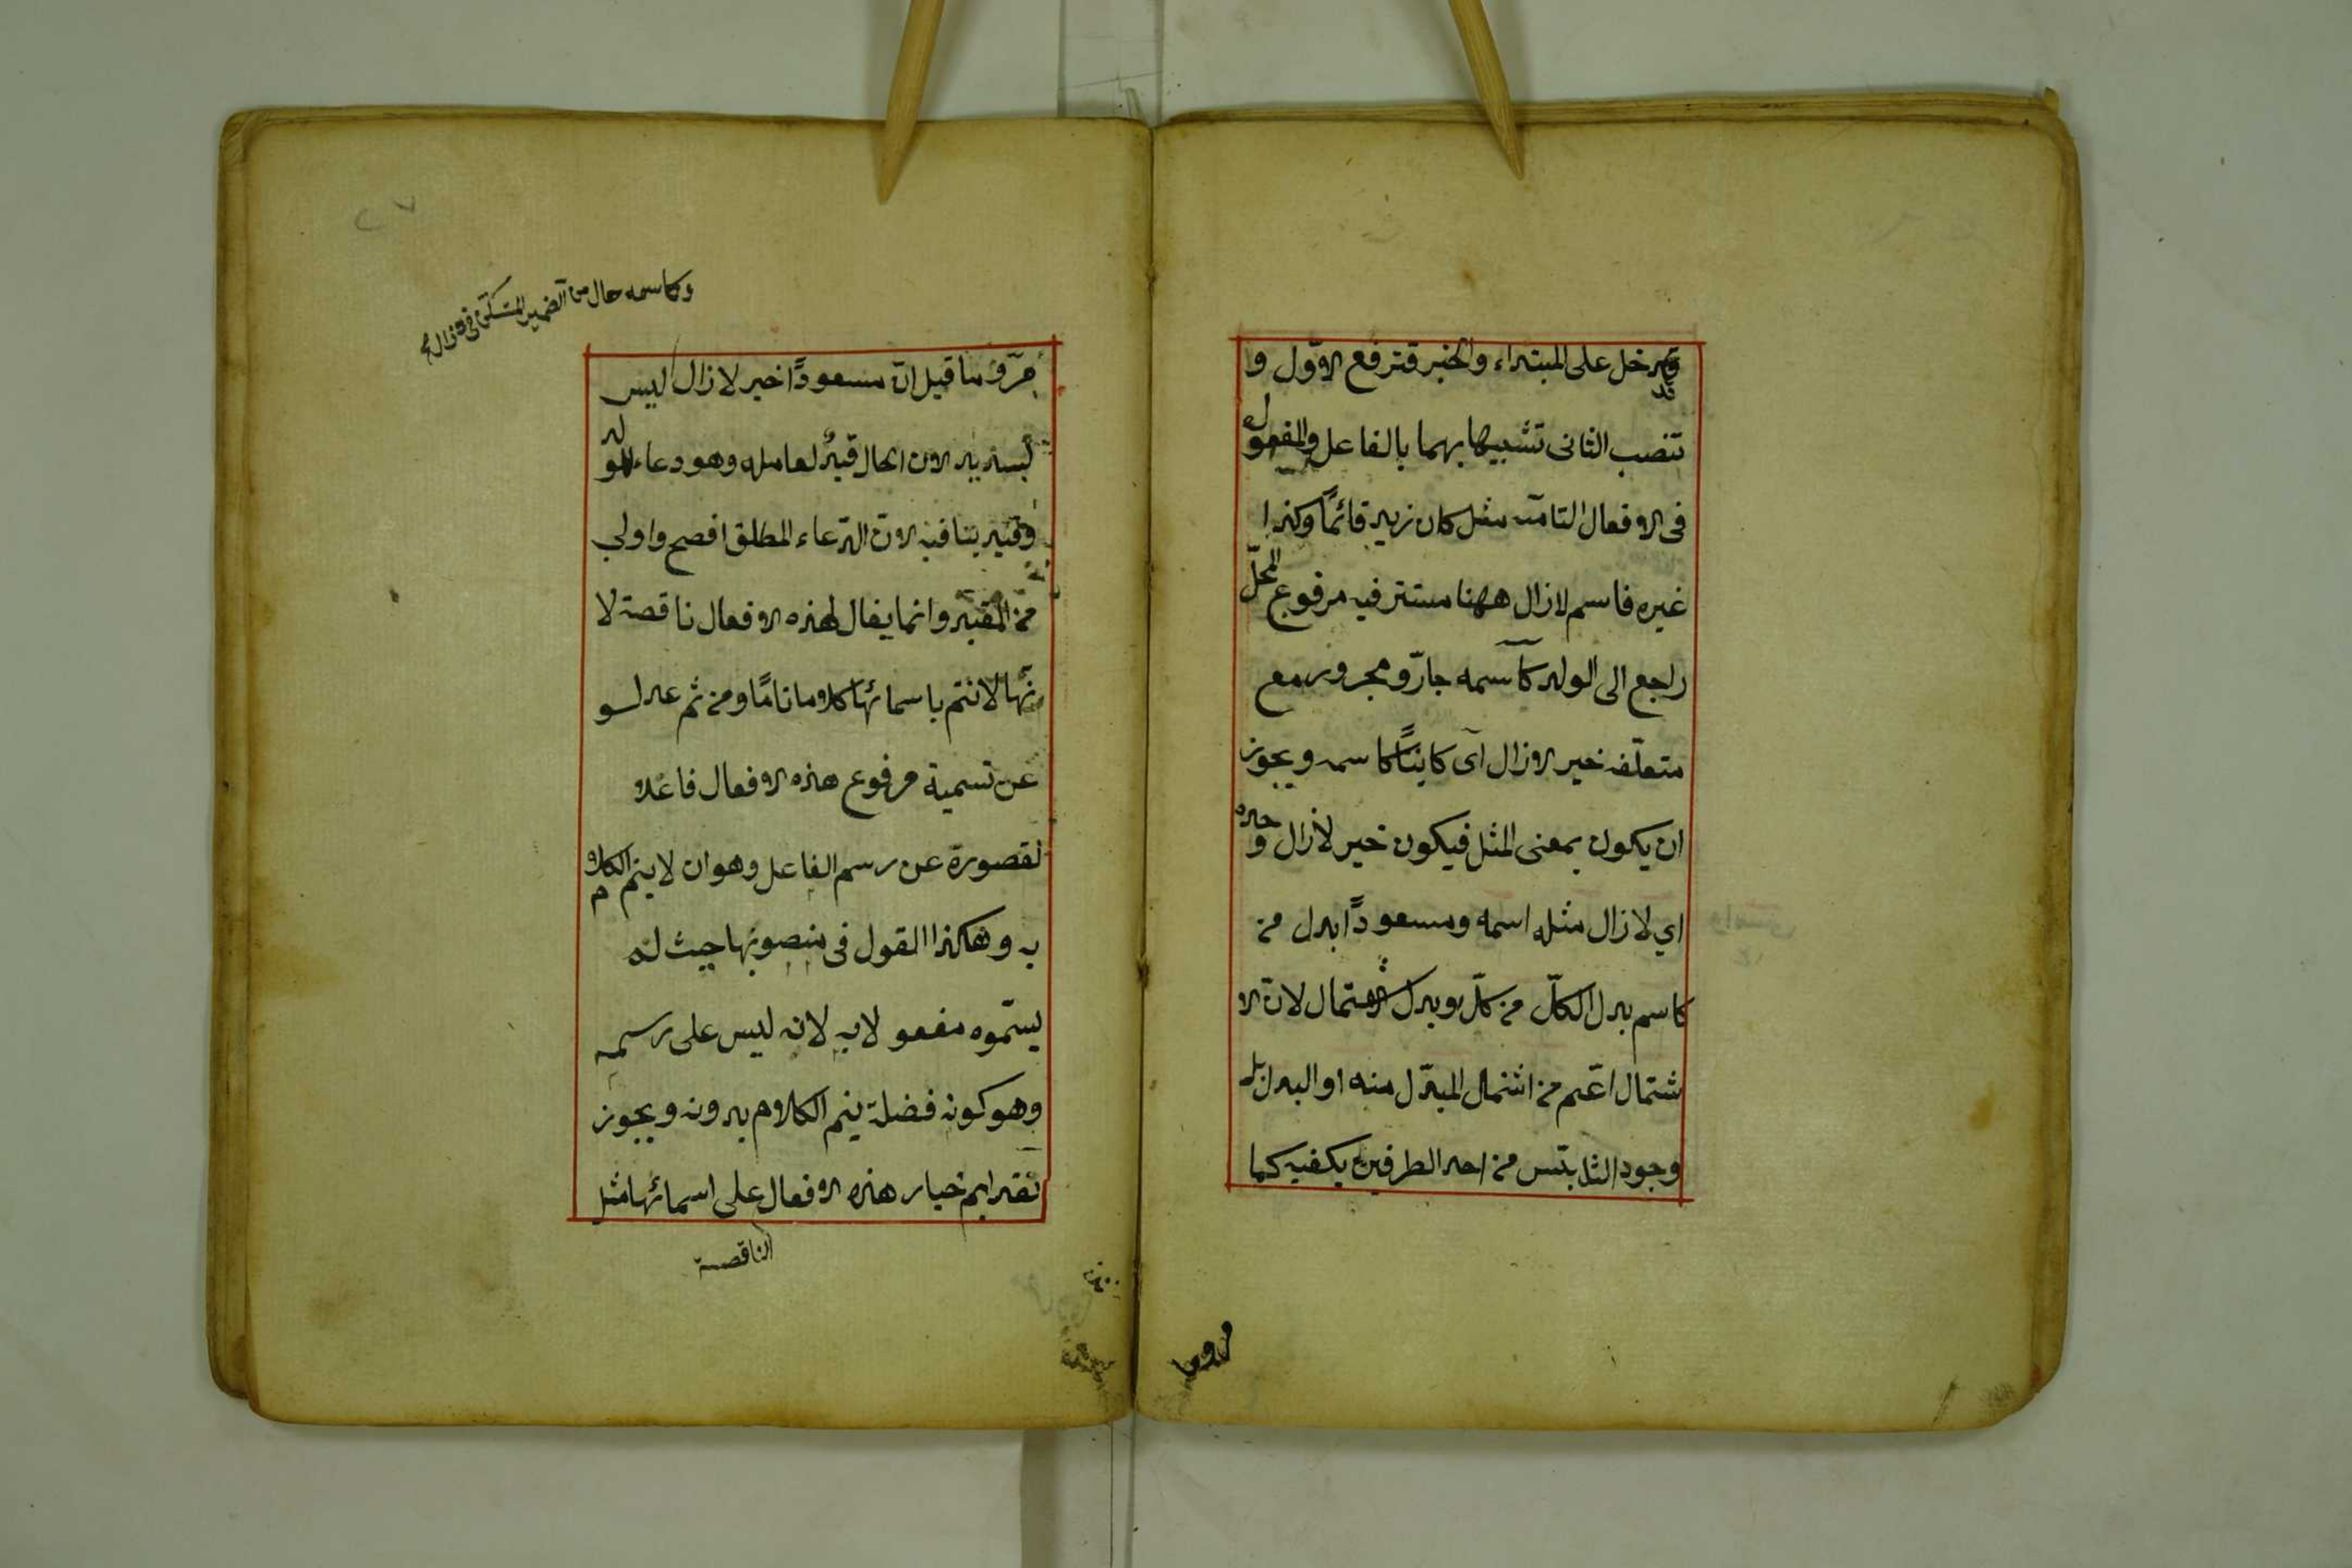 تدخل على المبتداء والخبر فترفع الاوّل و
تنصب الثانى تشبيها بهما بالفاعل والمفعول
فى الافعال التامّة مثل كان زيد قائمًا وكذا
غيره فاسم لازال ههنا مستتر فيه مرفوع المحلّ
راجع الى الولد كاسمه جارّ ومجرور مع
متعلّقه خبر لازال اى كاينًا كاسمه ويجوز
ان يكون بمعنى المثل فيكون خبر لازال وحده
اي لازال مثله اسمه ومسعودًا بدل من
كاسم بدل الكلّ من كلّ وبدل الاشتمال لانّ الا
شتمال اعّم من اشتمال المبدّل منه او البدل بل
وجود التلابس من احد الطرفين يكفيه كما
وكاسمه حال من الضمير المستكنّ فى لازال
مرّ وما قيل انّ مسعودًا خبر لازال ليس
بسديد لان الحال قيدٌ لعامله وهو دعاء للولد
وقيد ينافيه لانّ الدّعاء المطلق افصح واولى
من المقيّد وانما يقال لهذه الافعال ناقصة لا
نّها لا تتم باسمائها كلاما تامًا ومن ثم عدلو
عن تسمية مرفوع هذه الافعال فاعلا
لقصورة عن رسم الفاعل وهو ان لا يتم الكلام
به وهكذا القول فى منصوبها حيث لم
يسمّوه مفعولا به لانه ليس على رسمه
وهو كونه فضلة يتم الكلام بدونه ويجوز
تقديم خبار هذه الافعال على اسمائها مثل
الناقصة